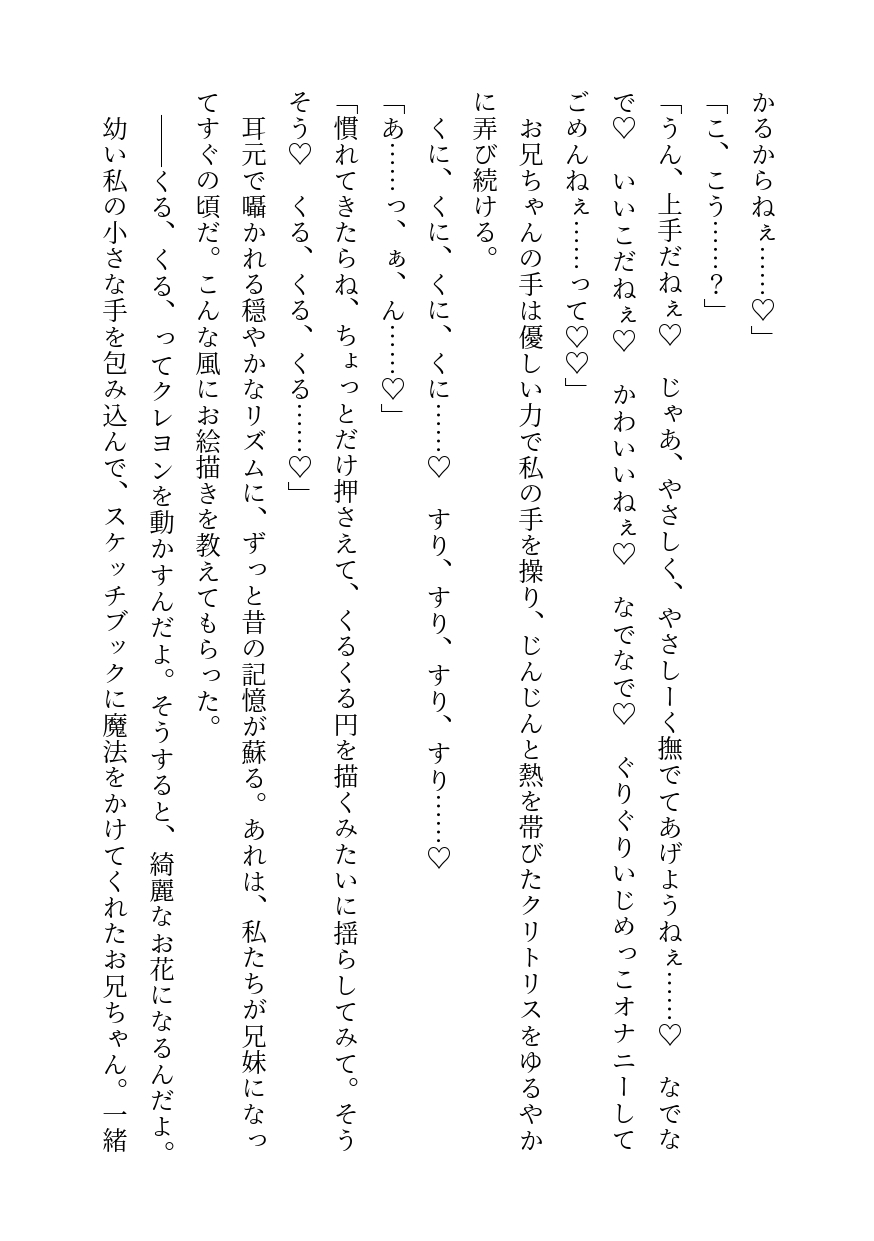 かるからねぇ……♡」
「こ、こう……？」
「うん、上手だねぇ♡　じゃあ、やさしく、やさしーく撫でてあげようねぇ……♡　なでな
で♡　いいこだねぇ♡　かわいいねぇ♡　なでなで♡　ぐりぐりいじめっこオナニーして
ごめんねぇ……って♡♡」
　お兄ちゃんの手は優しい力で私の手を操り、じんじんと熱を帯びたクリトリスをゆるやか
に弄び続ける。
　くに、くに、くに、くに……♡　すり、すり、すり、すり……♡
「あ……っ、ぁ、ん……♡」
「慣れてきたらね、ちょっとだけ押さえて、くるくる円を描くみたいに揺らしてみて。そう
そう♡　くる、くる、くる……♡」
　耳元で囁かれる穏やかなリズムに、ずっと昔の記憶が蘇る。あれは、私たちが兄妹になっ
てすぐの頃だ。こんな風にお絵描きを教えてもらった。
　――くる、くる、ってクレヨンを動かすんだよ。そうすると、綺麗なお花になるんだよ。
　幼い私の小さな手を包み込んで、スケッチブックに魔法をかけてくれたお兄ちゃん。一緒